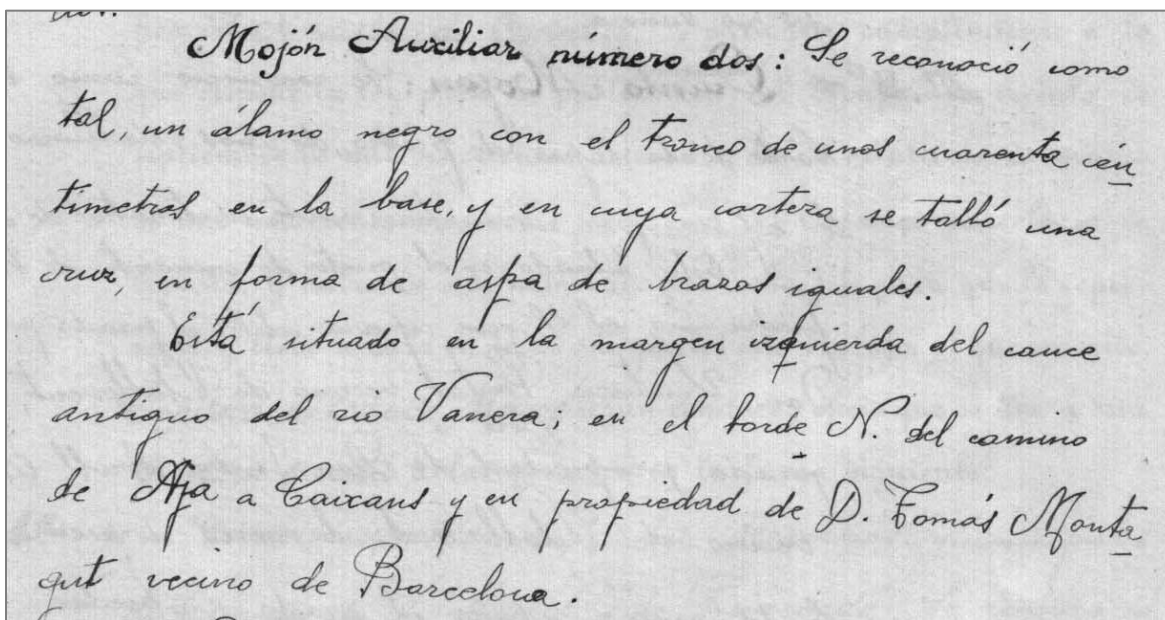 Mojón Auxiliar número dos: Se reconoció como
tal, un álamo negro con el tronco de unos cuarenta cén
timetros en la base, y en cuya corteza se talló una
cruz, en forma de aspa de brazos iguales.
Está situado en la margen izquierda del cauce
antiguo del rio Vanera; en el borde N. del camino
de Aja a Caixans y en propiedad de D. Tomás Monta
gut vecino de Barcelona.